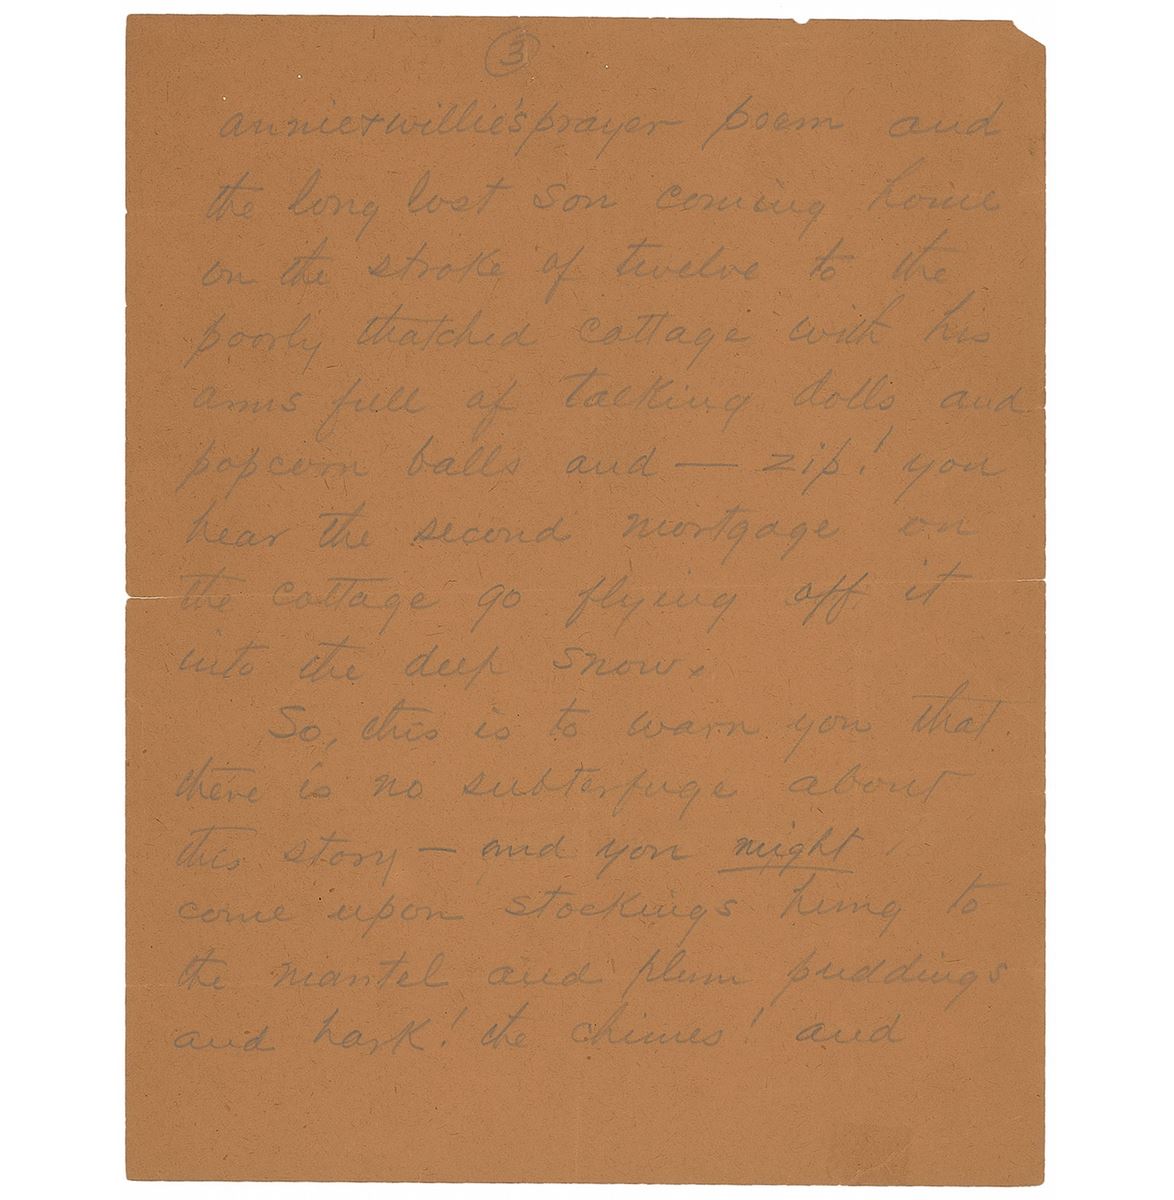 3
annie+willie's prayer poem and
the long lost son coming home
on the stroke of twelve to the
poorly thatched cottage with his
arms full of talking dolls and
popcorn balls and — zip! you
hear the second mortgage on
the cottage go flying off it
into the deep snow.
So, this is to warn you that
there is no subterfuge about
this story — and you might
come upon stockings hung to
the mantel and plum puddings
and hark! the chimes! and